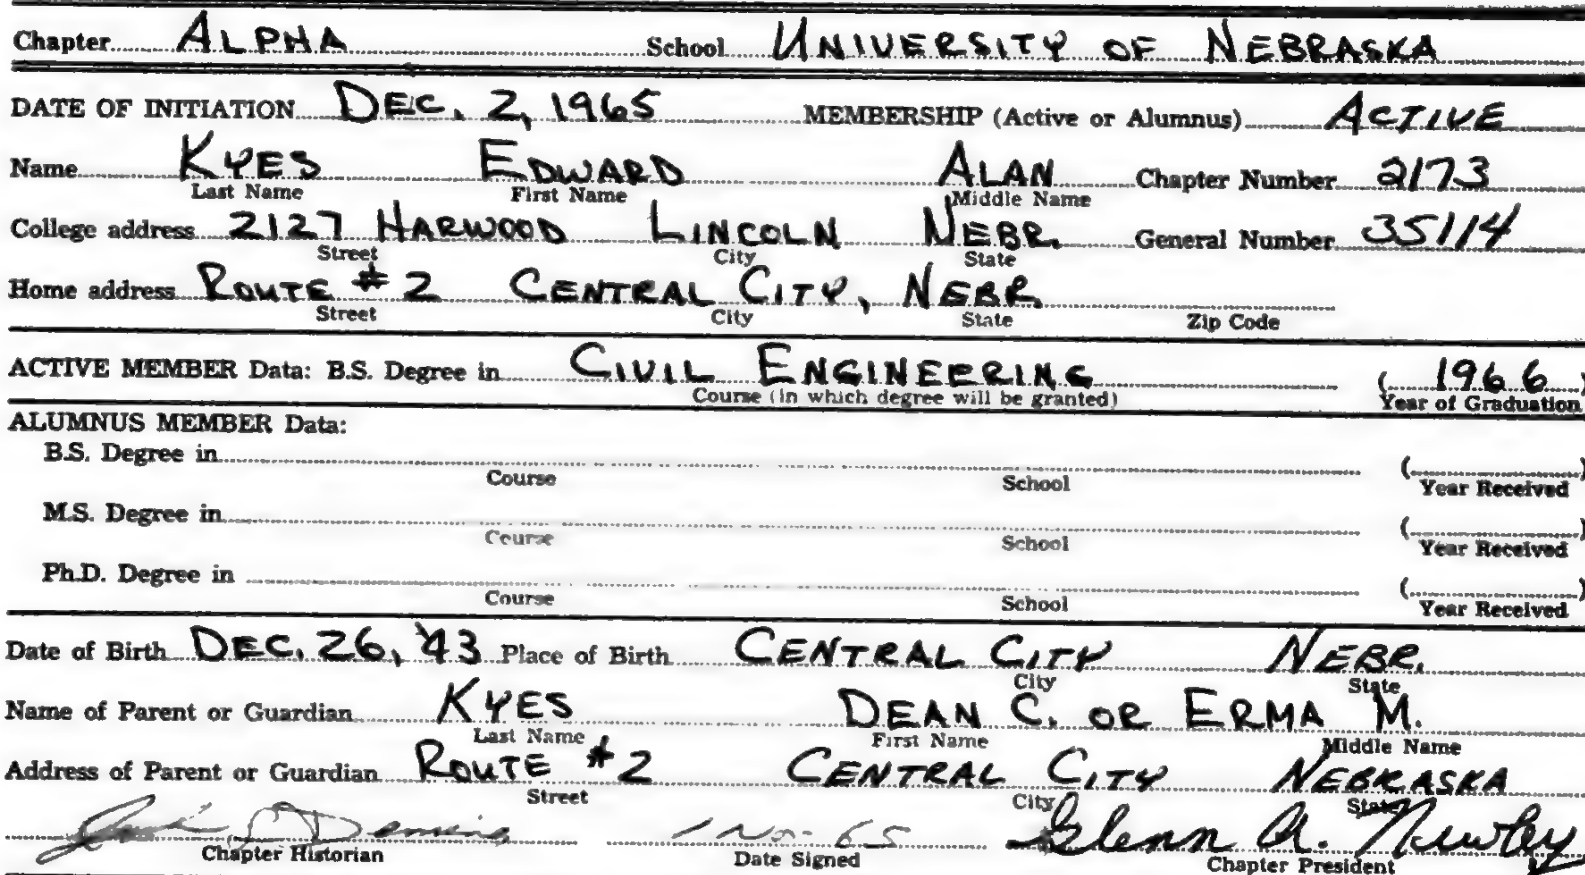 Chapter ALPHA School UNIVERSITY OF NEBRASKA
DATE OF INITIATION DEC. 2, 1965 MEMBERSHIP (Active or Alumnus) ACTIVE
Name KYES EDWARD ALAN Chapter Number 2173
Last Name First Name Middle Name
College address 2127 HARWOOD LINCOLN NEBR. General Number 35114
Street City State
Home address ROUTE #2 CENTRAL CITY, NEBR
Street City State Zip Code
ACTIVE MEMBER Data: B.S. Degree in CIVIL ENGINEERING (1966)
Course (in which degree will be granted) Year of Graduation
ALUMNUS MEMBER Data:
B.S. Degree in ( )
Course School Year Received
M.S. Degree in ( )
Course School Year Received
Ph.D. Degree in ( )
Course School Year Received
Date of Birth DEC. 26, '43 Place of Birth CENTRAL CITY NEBR.
City State
Name of Parent or Guardian KYES DEAN C. OR ERMA M.
Last Name First Name Middle Name
Address of Parent or Guardian ROUTE #2 CENTRAL CITY NEBRASKA
Street City State
Deming 65 Glenn A.
Chapter Historian Date Signed Chapter President